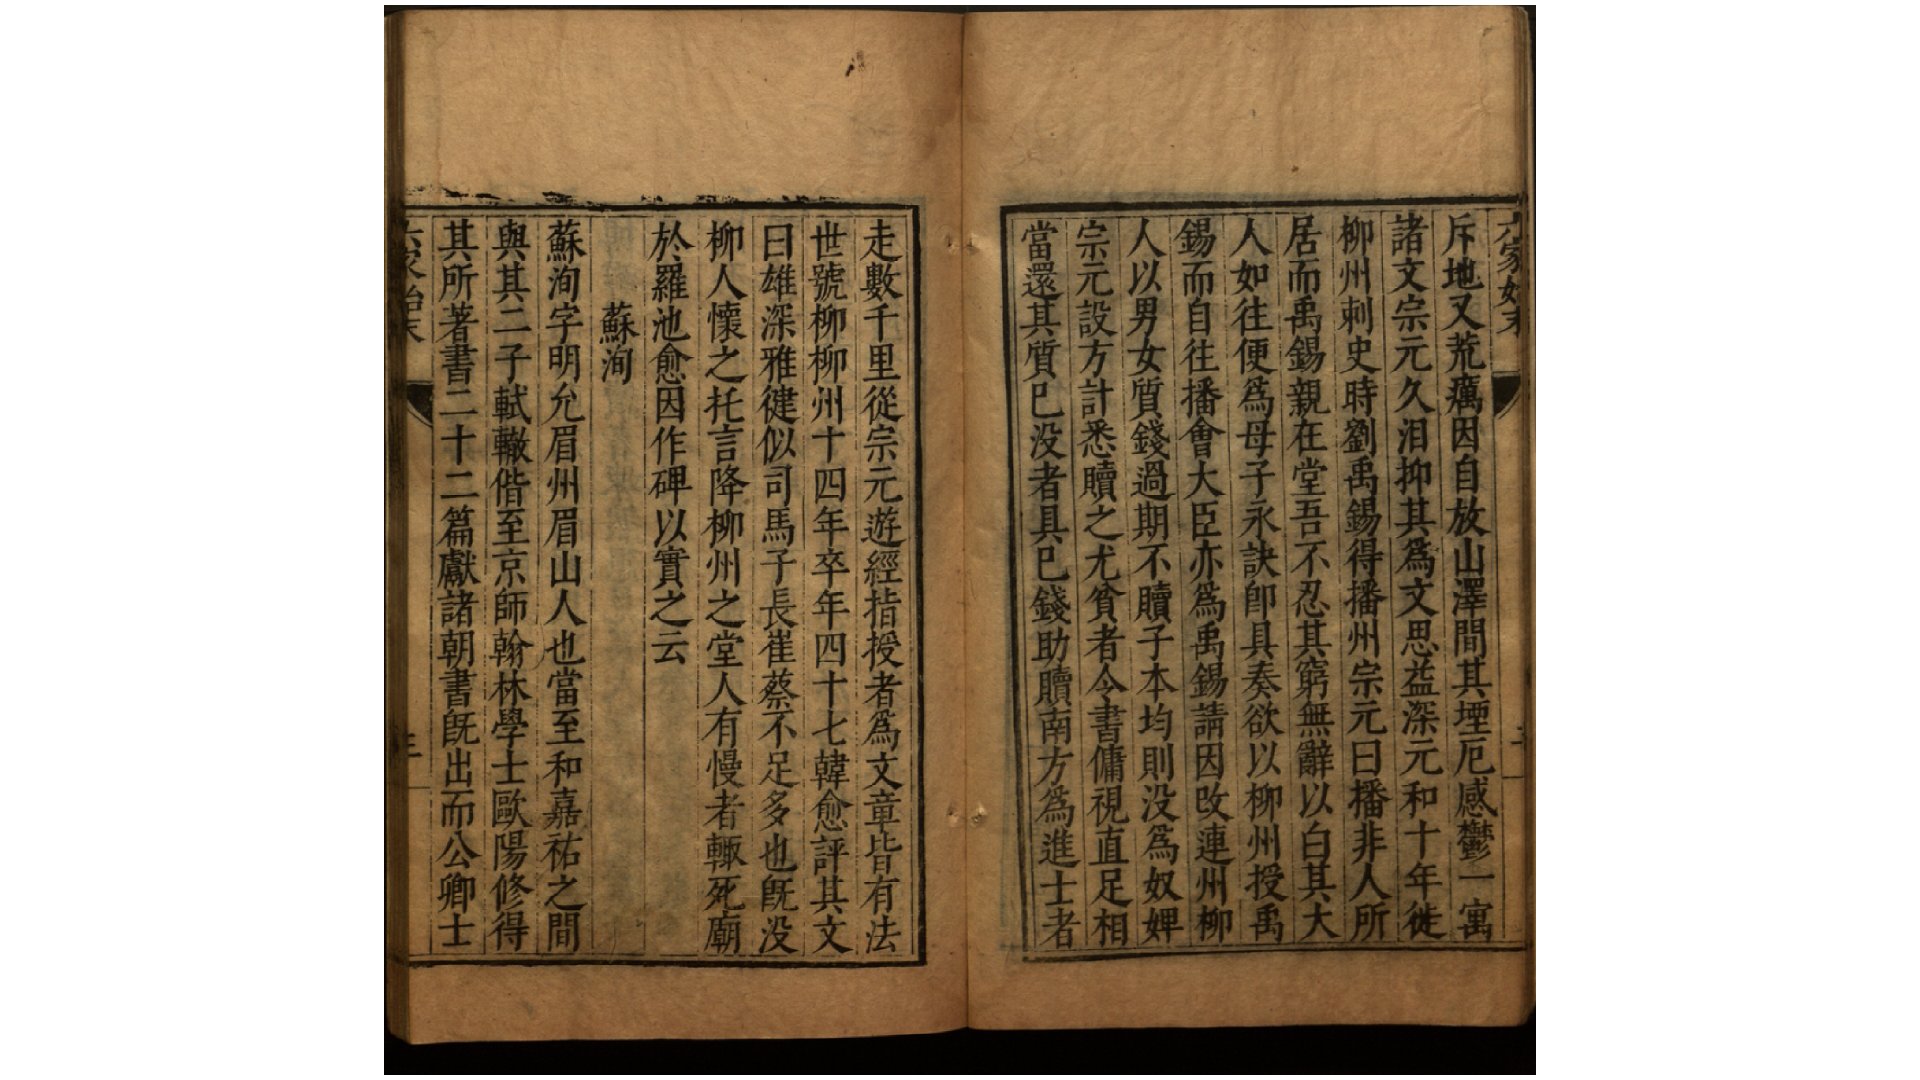 六家始末
斥地又荒癘因自放山澤間其堙厄感鬱一寓
諸文宗元久汨抑其爲文思益深元和十年徙
柳州刺史時劉禹錫得播州宗元曰播非人所
居而禹錫親在堂吾不忍其窮無辭以白其大
人如往便爲母子永訣卽具奏欲以柳州授禹
錫而自往播會大臣亦爲禹錫請因改連州柳
人以男女質錢過期不贖子本均則没爲奴婢
宗元設方計悉贖之尤貧者令書傭視直足相
當還其質已没者具已錢助贖南方爲進士者
走數千里從宗元遊經指授者爲文章皆有法
世號柳柳州十四年卒年四十七韓愈評其文
曰雄深雅健似司馬子長崔蔡不足多也旣没
柳人懷之托言降柳州之堂人有慢者輙死廟
於羅池愈因作碑以實之云
蘇洵
蘇洵字明允眉州眉山人也當至和嘉祐之間
與其二子軾轍偕至京師翰林學士歐陽修得
其所著書二十二篇獻諸朝書旣出而公卿士
六家始末
三